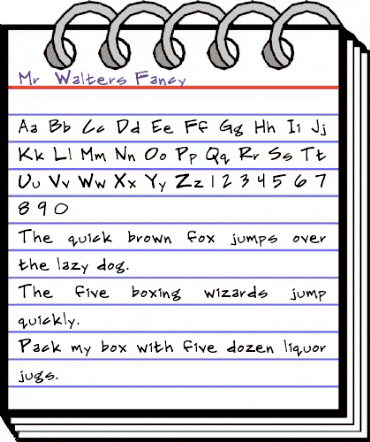 Mr Walters Fancy
Aa Bb Cc Dd Ee Ff Gg Hh Ii Jj
Kk Ll Mm Nn Oo Pp Qq Rr Ss Tt
Uu Vv Ww Xx Yy Zz 1 2 3 4 5 6 7
8 9 0
The quick brown fox jumps over
the lazy dog.
The five boxing wizards jump
quickly.
Pack my box with five dozen liquor
jugs.